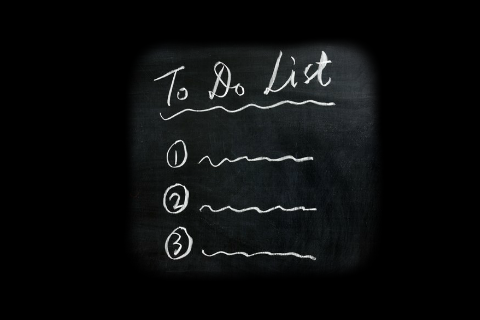 To Do List
①
②
③